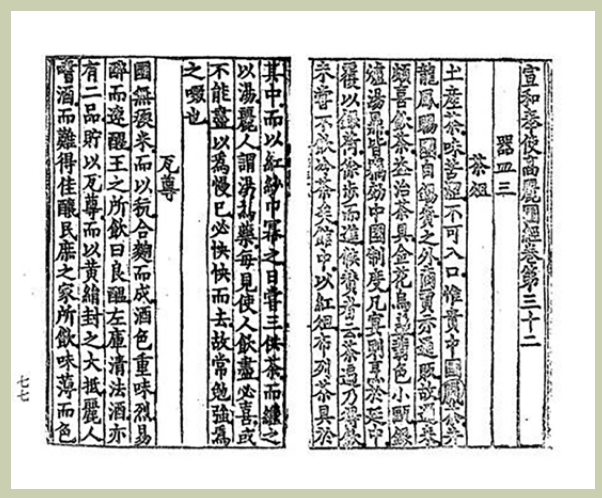 宣和奉使高麗圖經卷第三十二
器皿三
茶俎
土產茶味苦澀不可入口惟貴中國臘茶并
龍鳳賜團自錫賚之外商賈亦通販故邇來
頗喜飲茶益治茶具金花烏盞翡色小甌銀
爐湯鼎皆竊效中國制度凡宴則烹於廷中
覆以銀荷徐步而進候贊者云茶遍乃得飲
未嘗不飲冷茶矣館中以紅俎布列茶具於
其中而以紅紗巾羃之日嘗三供茶而繼之
以湯麗人謂湯為藥每見使人飲盡必喜或
不能盡以為慢己必怏怏而去故常勉強為
之啜也
瓦尊
國無稬米而以秔合麴而成酒色重味烈易
醉而速醒王之所飲曰良醞左庫清法酒亦
有二品貯以瓦尊而以黃絹封之大抵麗人
嗜酒而難得佳釀民庶之家所飲味薄而色
七七